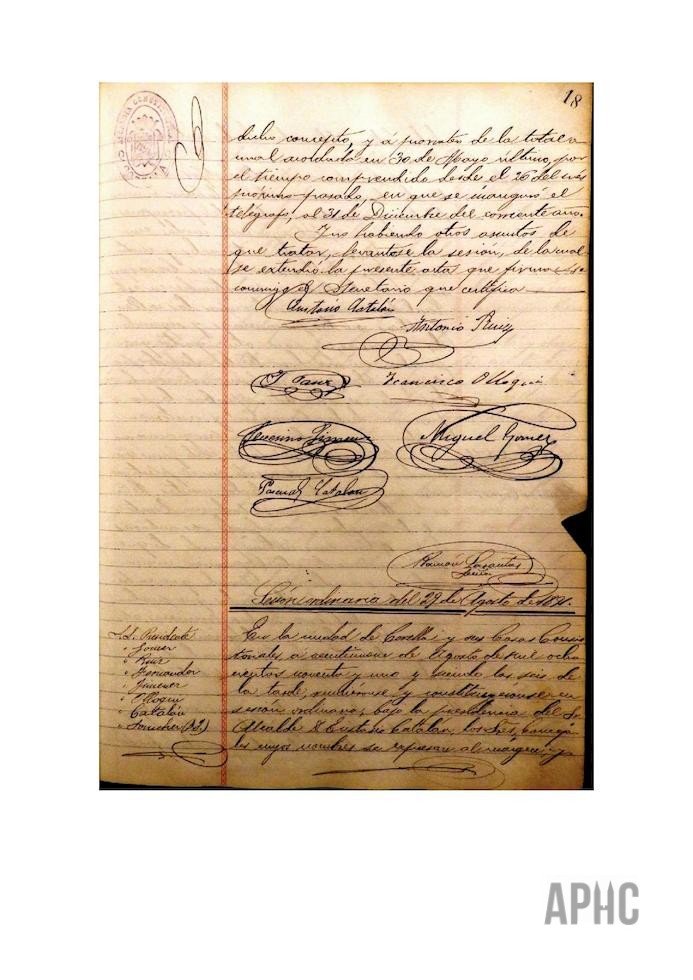 18
dicho concepto, y á prorrata de la total a
nual acordada en 30 de Mayo último, por
el tiempo comprendido desde el 26 del mes
próximo pasado, en que se inauguró el
telégrafo, al 31 de Diciembre del corriente año.
Y no habiendo otros asuntos de
que tratar, levantose la sesión, de la cual
se extendió la presente acta que firman
conmigo el Secretario que certifico
Eustasio Catalán
Antonio Ruiz
J Sanz
Francisco Olloqui
Jimenez
Miguel Gomez
Pascual Catalan
Ramón
Sesión ordinaria del 29 de Agosto de 1891.
Sr. Presidente
" Gomez
" Ruiz
" Jimenez
" Olloqui
" Catalán
" Sanchez
En la ciudad de Corella y sus Casas Consis
toriales a veintinueve de Agosto de mil ocho
cientos noventa y uno y siendo las seis de
la tarde, reunieronse y constituyeronse en
sesión ordinaria, bajo la presidencia del Sr.
Alcalde D. Eustasio Catalan, los Sres. conceja
les cuyos nombres se expresan al margen, y
APHC